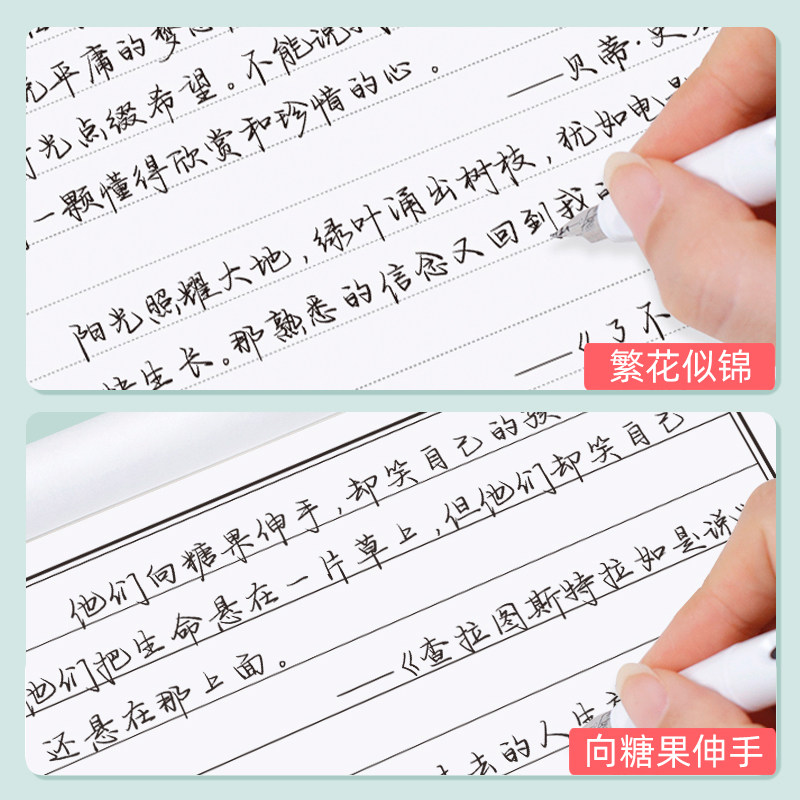 平庸的梦
光点缀希望。不能说
一颗懂得欣赏和珍惜的心。
——贝蒂·史
阳光照耀大地，绿叶涌出树枝，犹如电
快生长。那熟悉的信念又回到我
——《了不
繁花似锦
他们向糖果伸手，却笑自己的孩
他们把生命悬在一片草上，但他们却笑自己
还悬在那上面。
——《查拉图斯特拉如是说》
去的人生
向糖果伸手